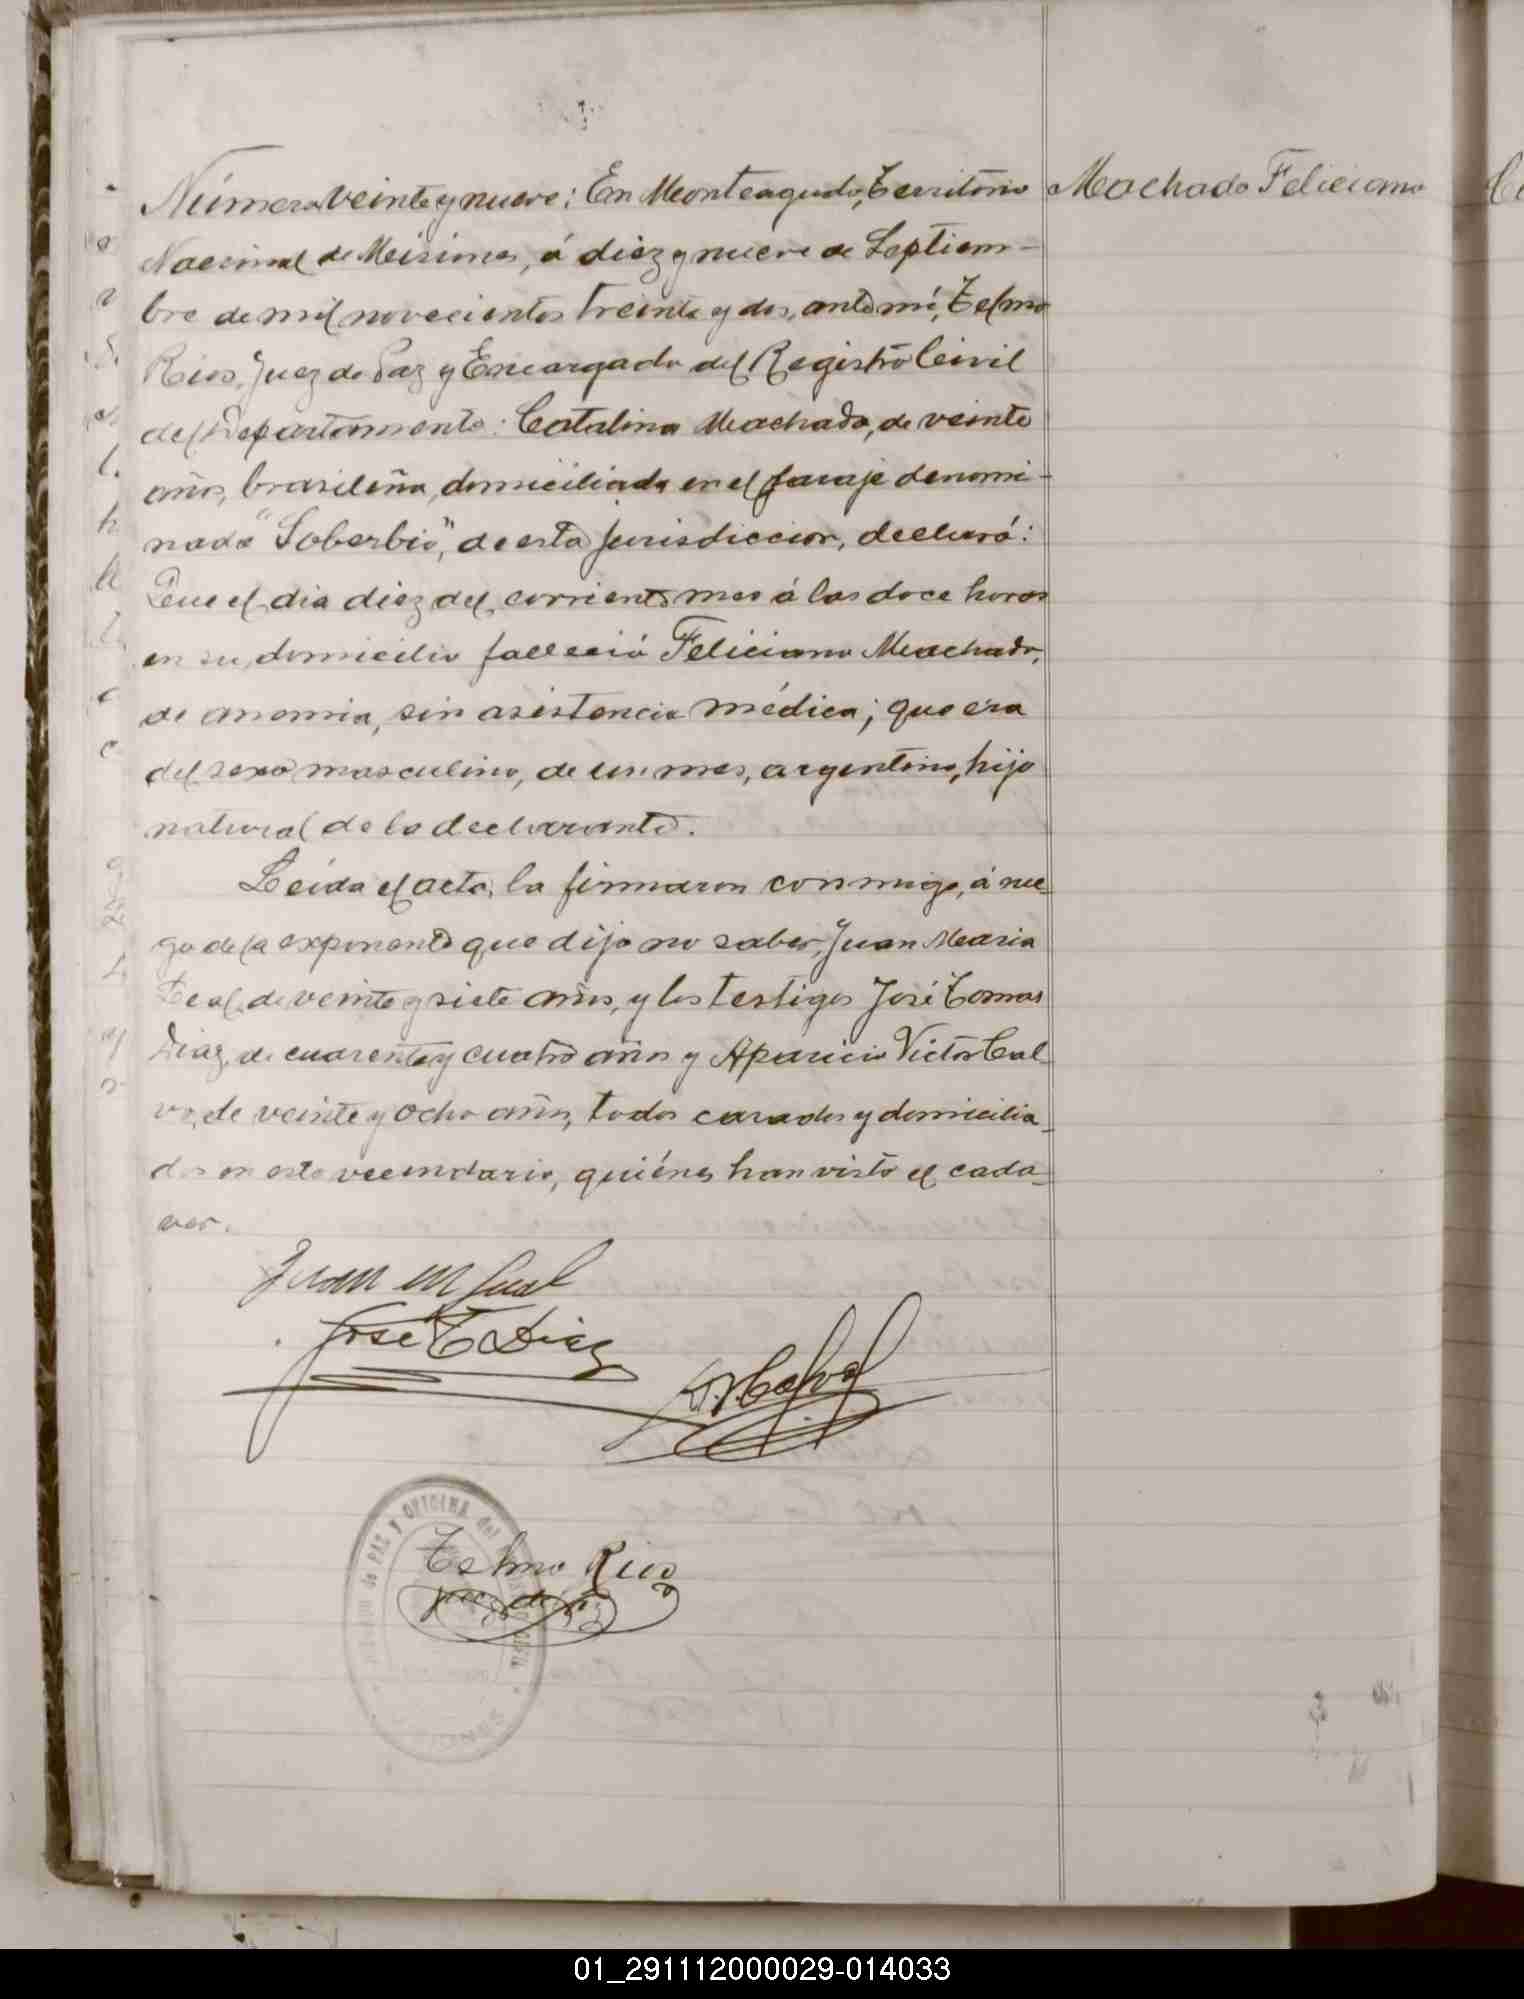 Número veinte y nueve: En Monteagudo, Territorio
Machado Feliciano
Nacional de Misiones, á diez y nueve de Septiem-
bre de mil novecientos treinta y dos, ante mí, Telmo
Rios, Juez de Paz y Encargado del Registro Civil
del Departamento: Catalina Machado, de veinte
años, brasileña, domiciliada en el paraje denomi-
nado "Soberbio", de esta jurisdiccion, declaró:
Que el dia diez del corriente mes á las doce horas
en su domicilio falleció Feliciano Machado,
de anemia, sin asistencia médica; que era
del sexo masculino, de un mes, argentino, hijo
natural de la declarante.
Leida el acta, la firmaron conmigo, á rue-
go de la exponente que dijo no saber, Juan Maria
Leal, de veinte y siete años, y los testigos José Tomas
Diaz, de cuarenta y cuatro años y Aparicio Victor Cal-
vo, de veinte y ocho años, todos casados y domicilia-
dos en este vecindario, quiénes han visto el cada-
ver.
Juan M Leal
José T Diaz
A.V. Calvo
PAZ y OFICINA del
Telmo Rios
Juez de Paz
MISIONES
01_291112000029-014033